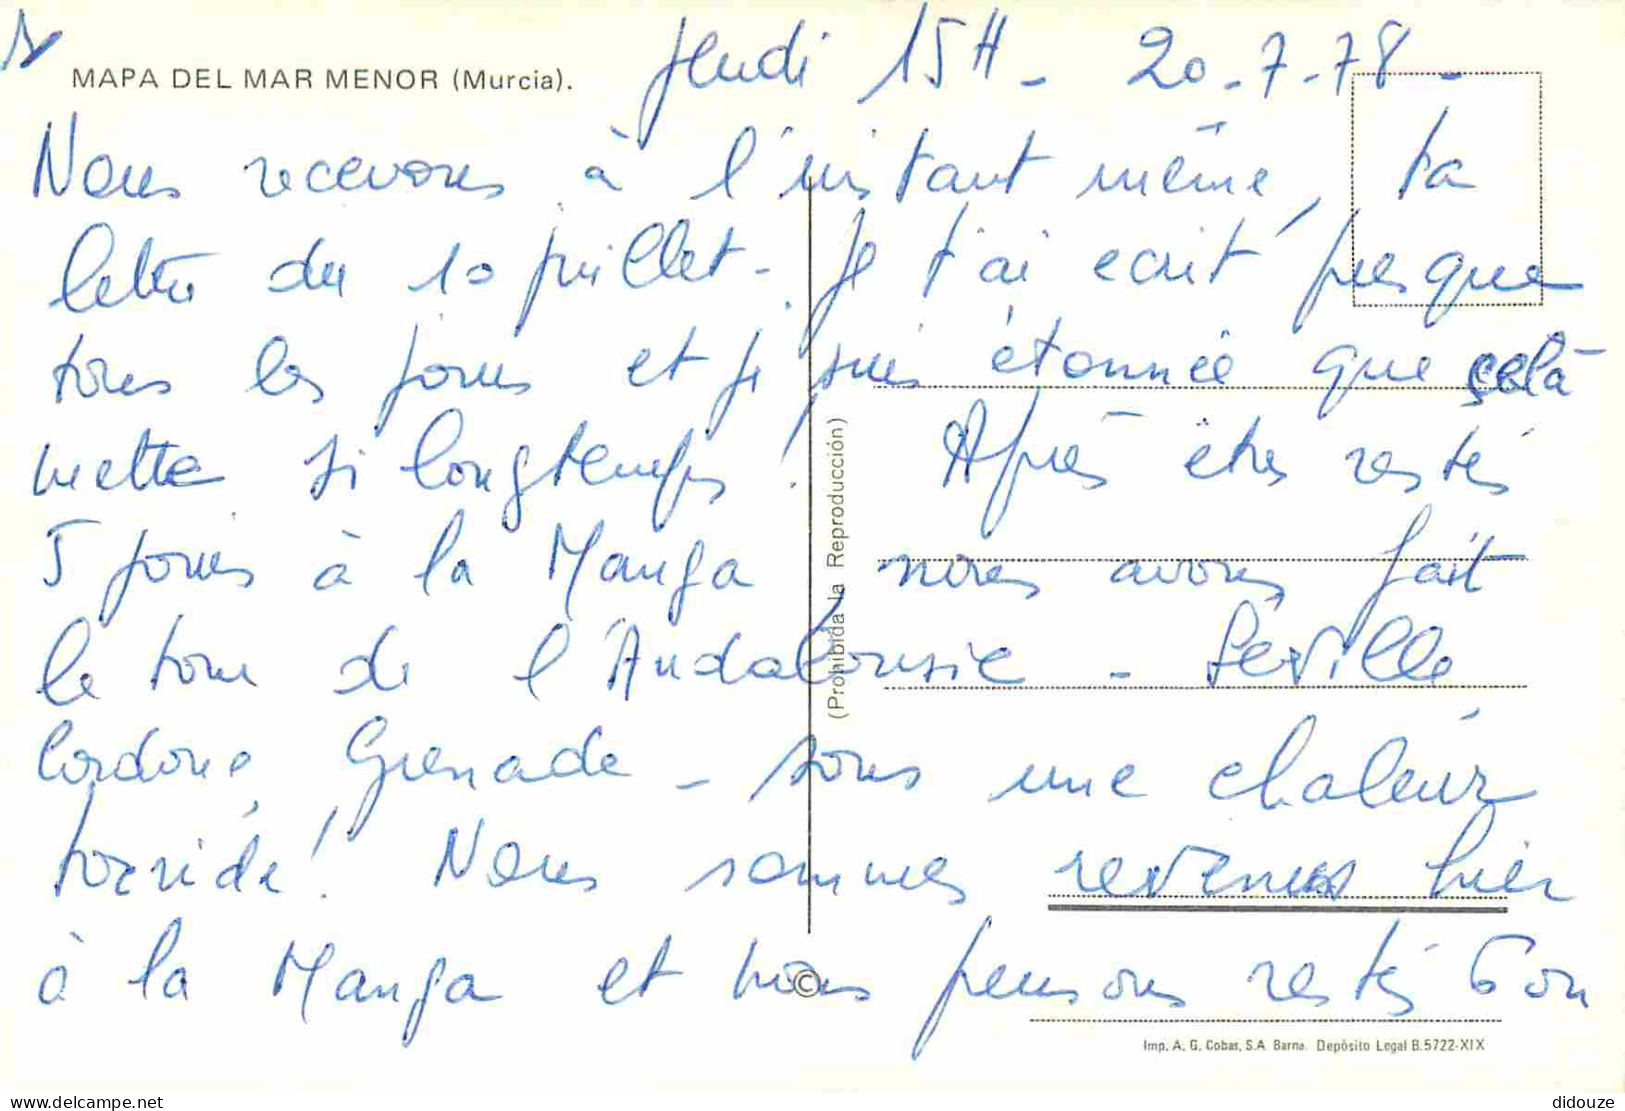 Jeudi 15H - 20-7-78-
MAPA DEL MAR MENOR (Murcia).
Nous recevons à l'instant même, ta
lettre du 10 juillet - Je t'ai écrit presque
tous les jours et je suis étonnée que celà
mette si longtemps ! Après être restés
5 jours à la Manga nous avons fait
le tour de l'Andalousie - Séville
Cordoue, Grenade - sous une chaleur
torride ! Nous sommes revenus hier
à la Manga et nous pensons restés 6 ou
(Prohibida la Reproducción)
©
Imp. A. G. Cobas, S.A. Barna. Depósito Legal B.5722-XIX
delcampe.net
didouze